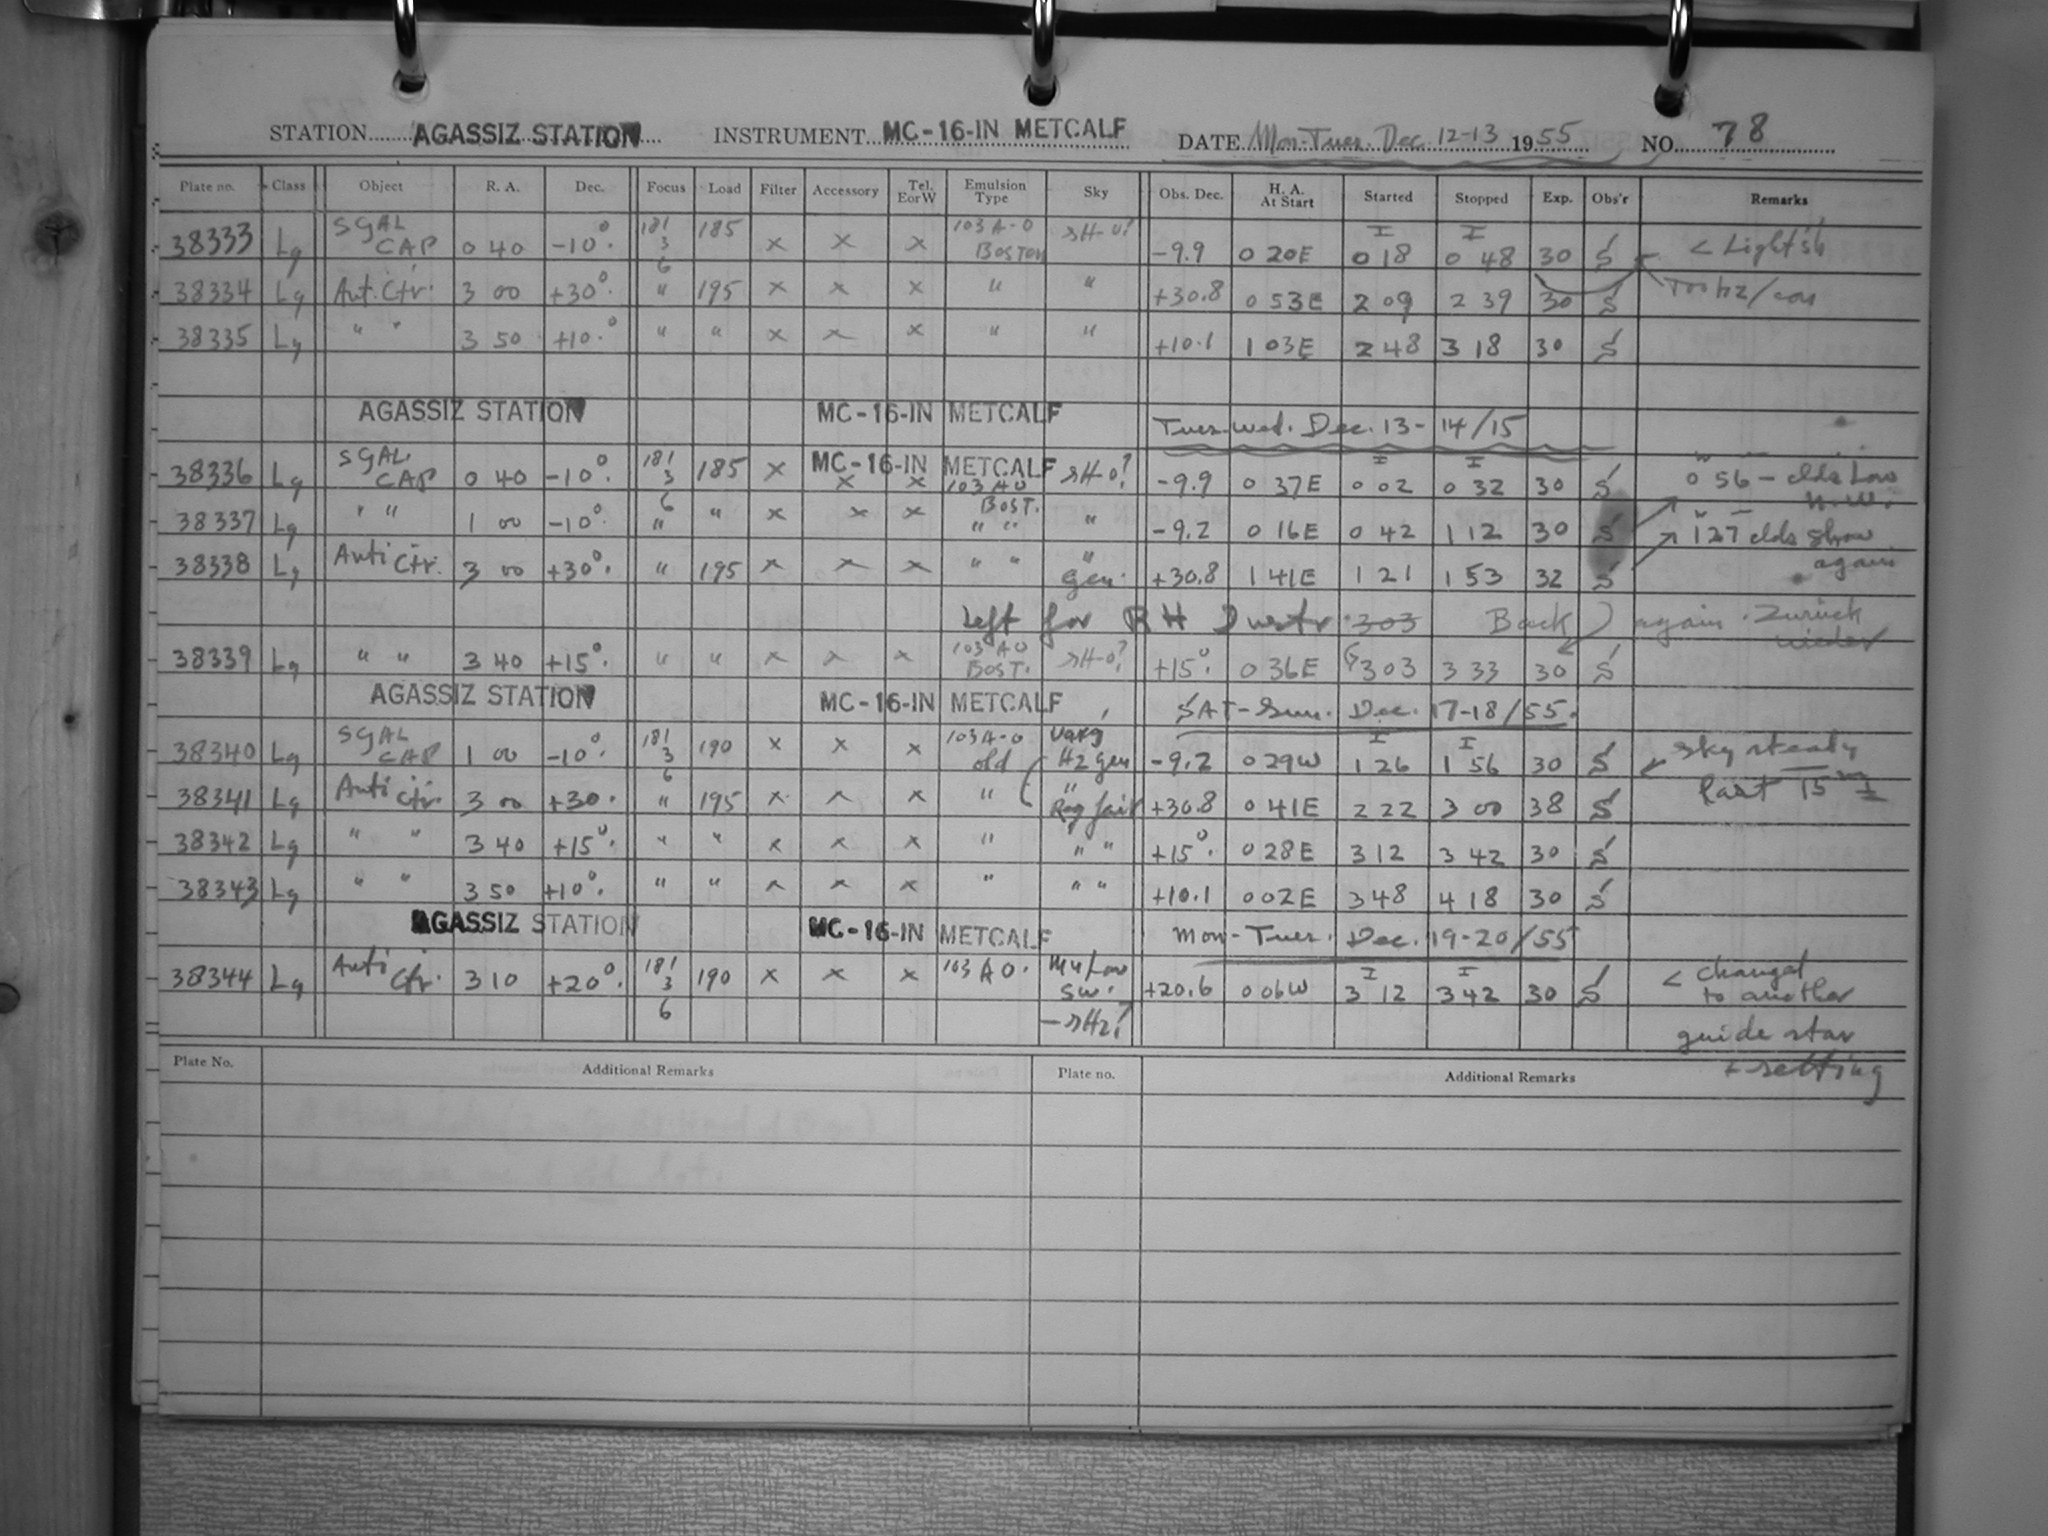 STATION AGASSIZ STATION INSTRUMENT MC-16-IN METCALF DATE Mon-Tues. Dec. 12-13 1955 NO. 78
Plate no. Class Object R. A. Dec. Focus Load Filter Accessory Tel. EorW Emulsion Type Sky Obs. Dec. H. A. At Start Started Stopped Exp. Obs'r Remarks
38333 Lg SGAL CAP 0 40 -10° 181 3 6 185 x x x 103A-O BOSTON -9.9 0 20E I 0 18 I 0 48 30 S < Light
38334 Lg Anti Ctr. 3 00 +30° " 195 x x x " " +30.8 0 53E 2 09 2 39 30 S
38335 Lg " " 3 50 +10° " " x x x " " +10.1 1 03E 2 48 3 18 30 S
AGASSIZ STATION MC-16-IN METCALF Tues-Wed. Dec. 13-14/15
MC-16-IN METCALF
38336 Lg SGAL CAP 0 40 -10° 181 3 6 185 x x x 103 AO BOST. -9.9 0 37E I 0 02 I 0 32 30 S 0 56 - clds Low N.W.
38337 Lg " " 1 00 -10° " " x x x " " " -9.2 0 16E 0 42 1 12 30 S 1 27 clds show again
38338 Lg Anti Ctr. 3 00 +30° " 195 x x x " " " Gen. +30.8 1 41E 1 21 1 53 32 S
Left for R H 303 Back again. Zurück wieder
38339 Lg " " 3 40 +15° " " x x x 103 AO BOST. +15° 0 36E 303 3 33 30 S
AGASSIZ STATION MC-16-IN METCALF SAT-Sun. Dec. 17-18/55.
38340 Lg SGAL CAP 1 00 -10° 181 3 6 190 x x x 103A-O old Hz gen -9.2 0 29W I 1 26 I 1 56 30 S sky steady last 15m
38341 Lg Anti Ctr. 3 00 +30° " 195 x x x " " Reg fair +30.8 0 41E 2 22 3 00 38 S
38342 Lg " " 3 40 +15° " " x x x " " " +15° 0 28E 3 12 3 42 30 S
38343 Lg " " 3 50 +10° " " x x x " " " +10.1 0 02E 3 48 4 18 30 S
AGASSIZ STATION MC-16-IN METCALF Mon-Tues. Dec. 19-20/55
38344 Lg Anti Ctr. 3 10 +20° 181 3 6 190 x x x 103 AO. Low SW. +20.6 0 06W I 3 12 I 3 42 30 S < changed to another
guide star
+ setting
Plate No. Additional Remarks Plate no. Additional Remarks